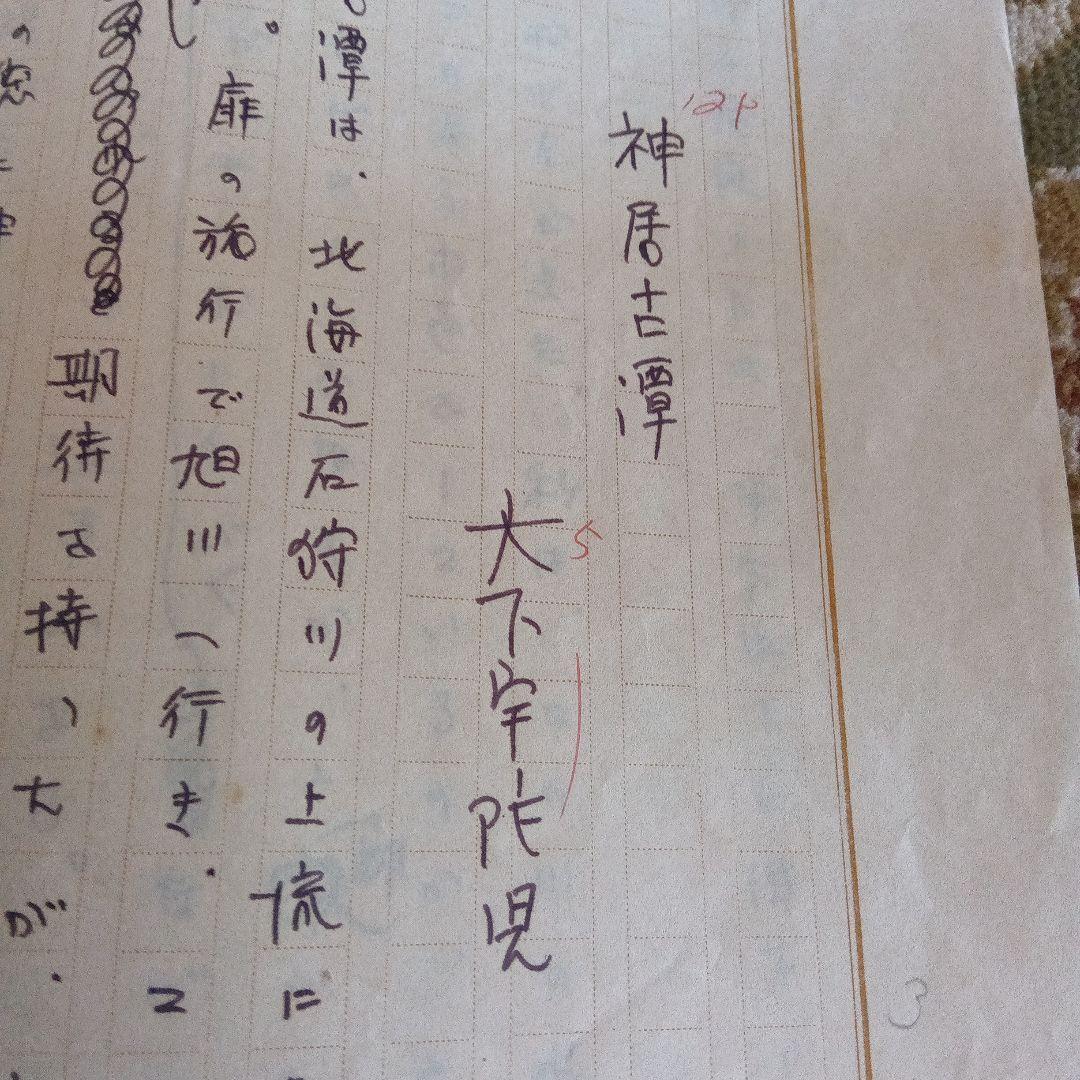 12P
神居古潭
5
大下宇陀児
潭は、北海道石狩川の上流に
。扉の旅行で旭川へ行き、こ
期待は持つたが、
3